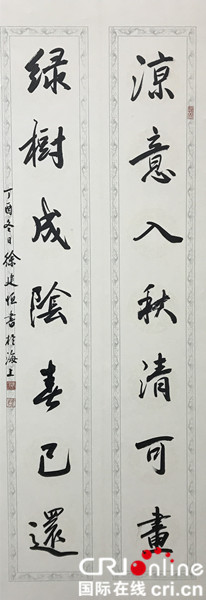 凉意入秋清可畫
绿樹成陰春已還
丁酉冬日徐建恒書於海上
CRIonline
国际在线 cri.cn